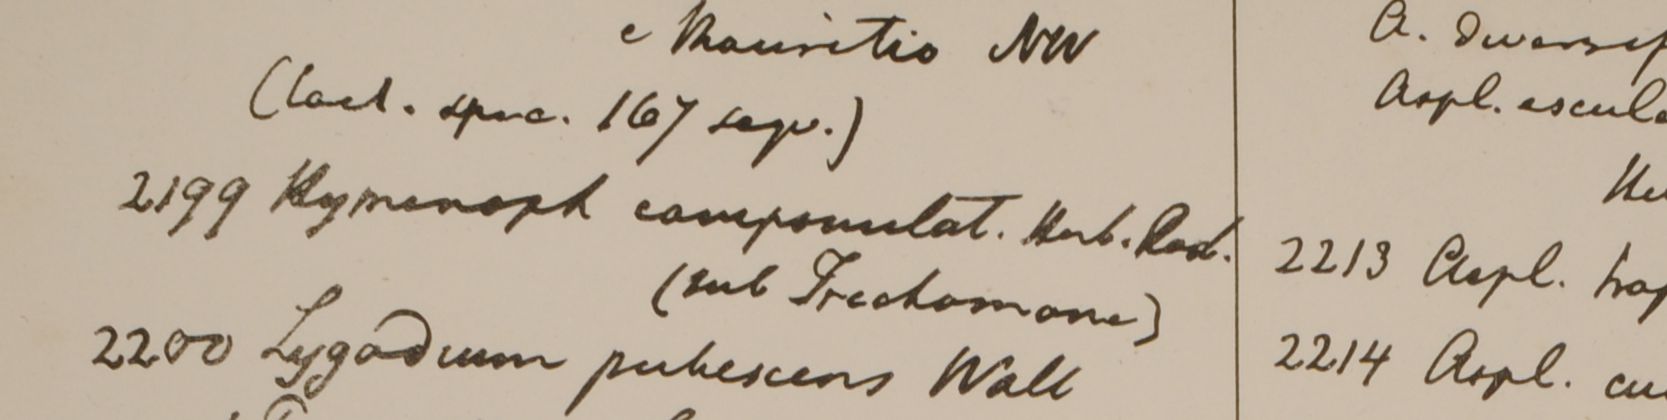 e Mauritio NW
(Cael. spec. 167 seqv.)
2199 Hymenoph campanulat. Herb. Rad.
(sub Trichomane)
2200 Lygodium pubescens Wall
A. diversif
Aspl. escule
He
2213 Aspl. trap
2214 Aspl. cu